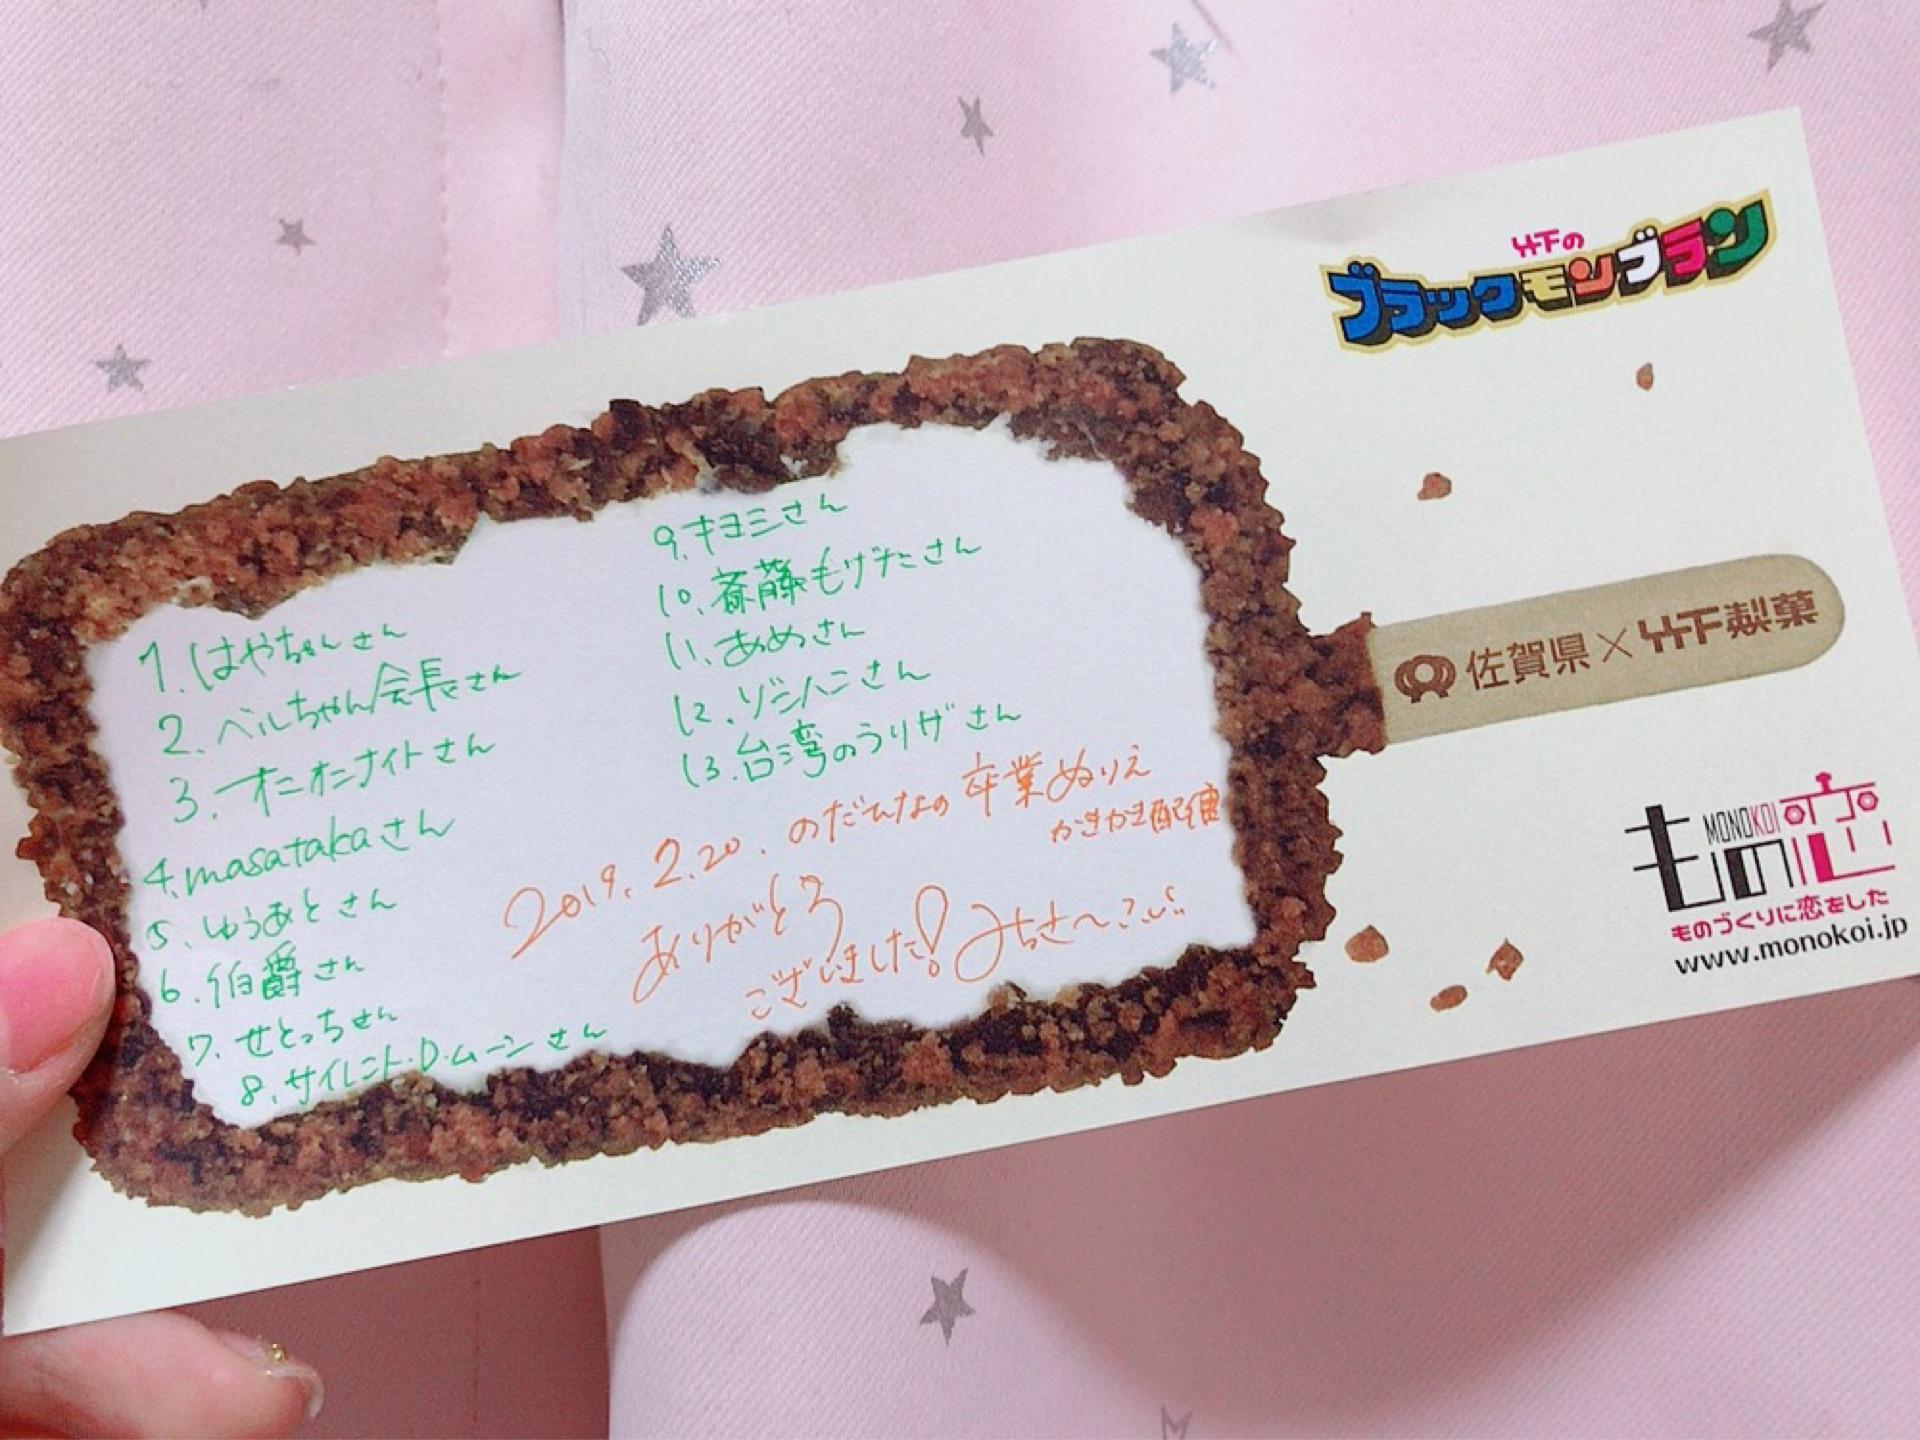 竹下の
ブラックモンブラン
1. はやちゃんさん
2. ベルちゃん会長さん
3. オニオニナイトさん
4. masatakaさん
5. しゅうあとさん
6. 伯爵さん
7. せとっちさん
8. サイレント・D・ムーンさん
9. キヨシさん
10. 斎藤もげたさん
11. あめさん
12. ゾンハンさん
13. 台湾のうりザさん
2019. 2.20. のだひなの卒業ぬりえ
かきかき配信
ありがとう
ございました!
佐賀県×竹下製菓
MONOKOI
もの恋
ものづくりに恋をした
www.monokoi.jp